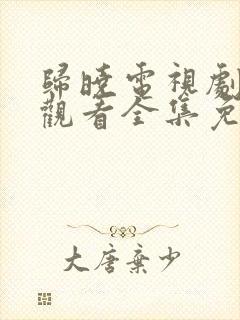 歸曉電視劇
觀看全集免
大唐棄少